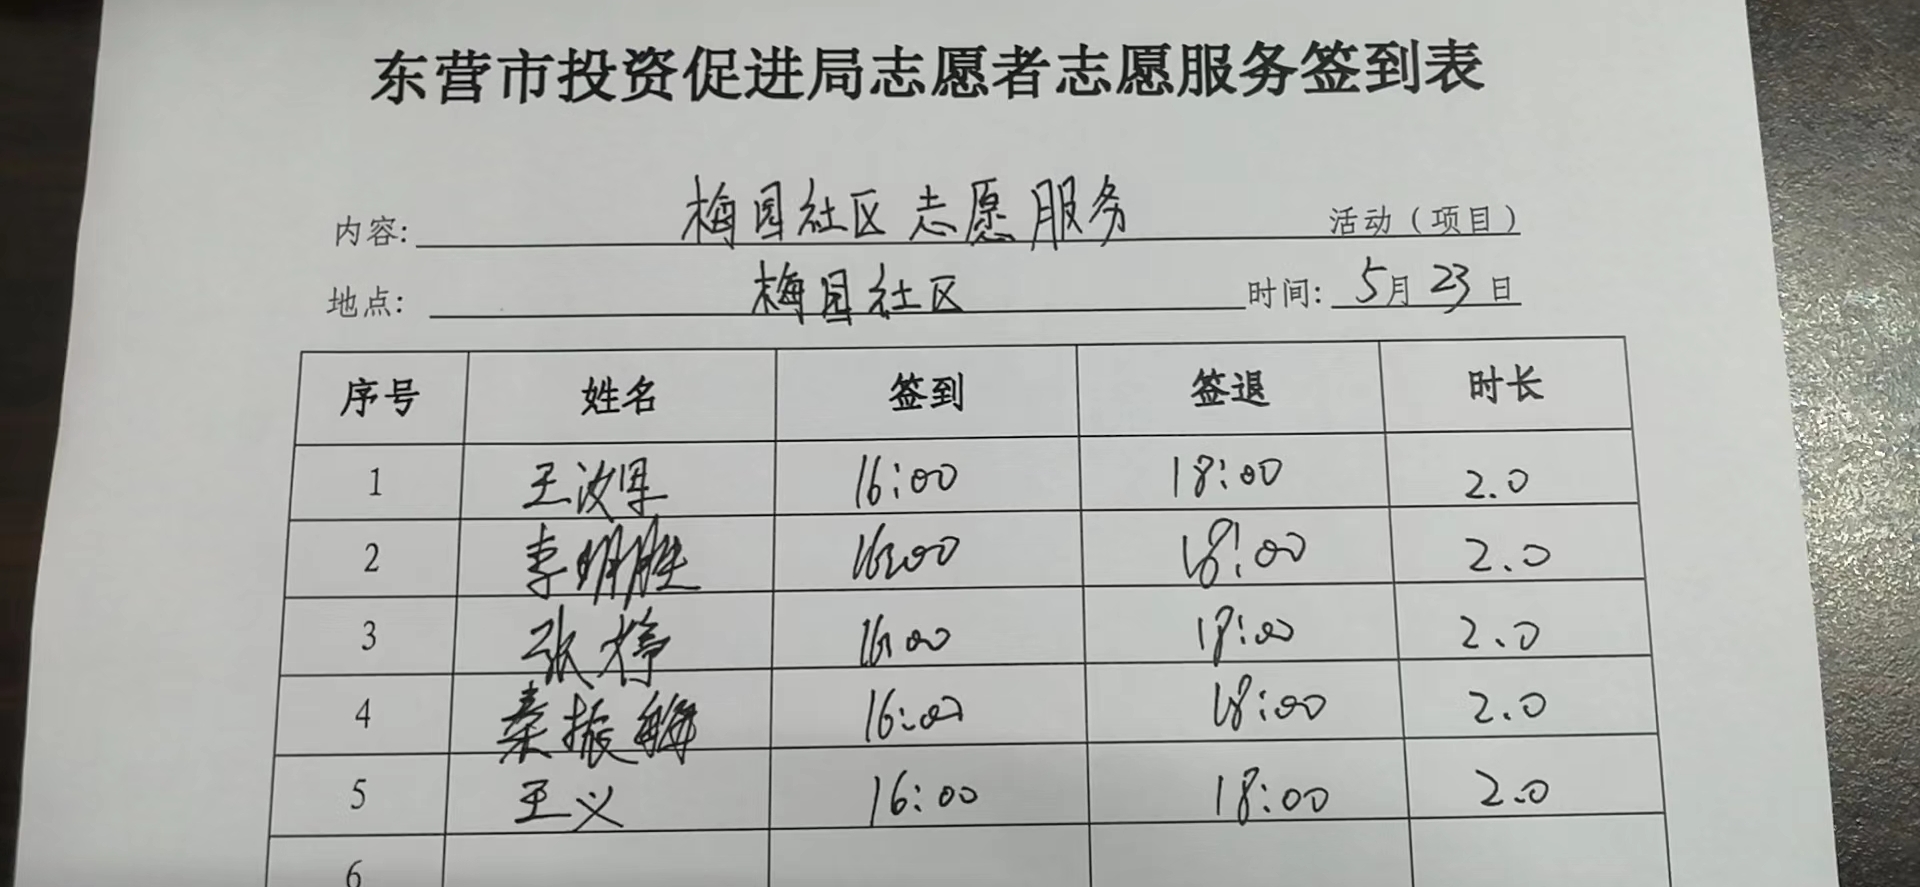 东营市投资促进局志愿者志愿服务签到表
内容: 梅园社区志愿服务 活动（项目）
地点: 梅园社区 时间: 5月23日
序号 姓名 签到 签退 时长
1 王汝 16:00 18:00 2.0
2 李明胜 16:00 18:00 2.0
3 张婷 16:00 18:00 2.0
4 秦振 16:00 18:00 2.0
5 王义 16:00 18:00 2.0
6